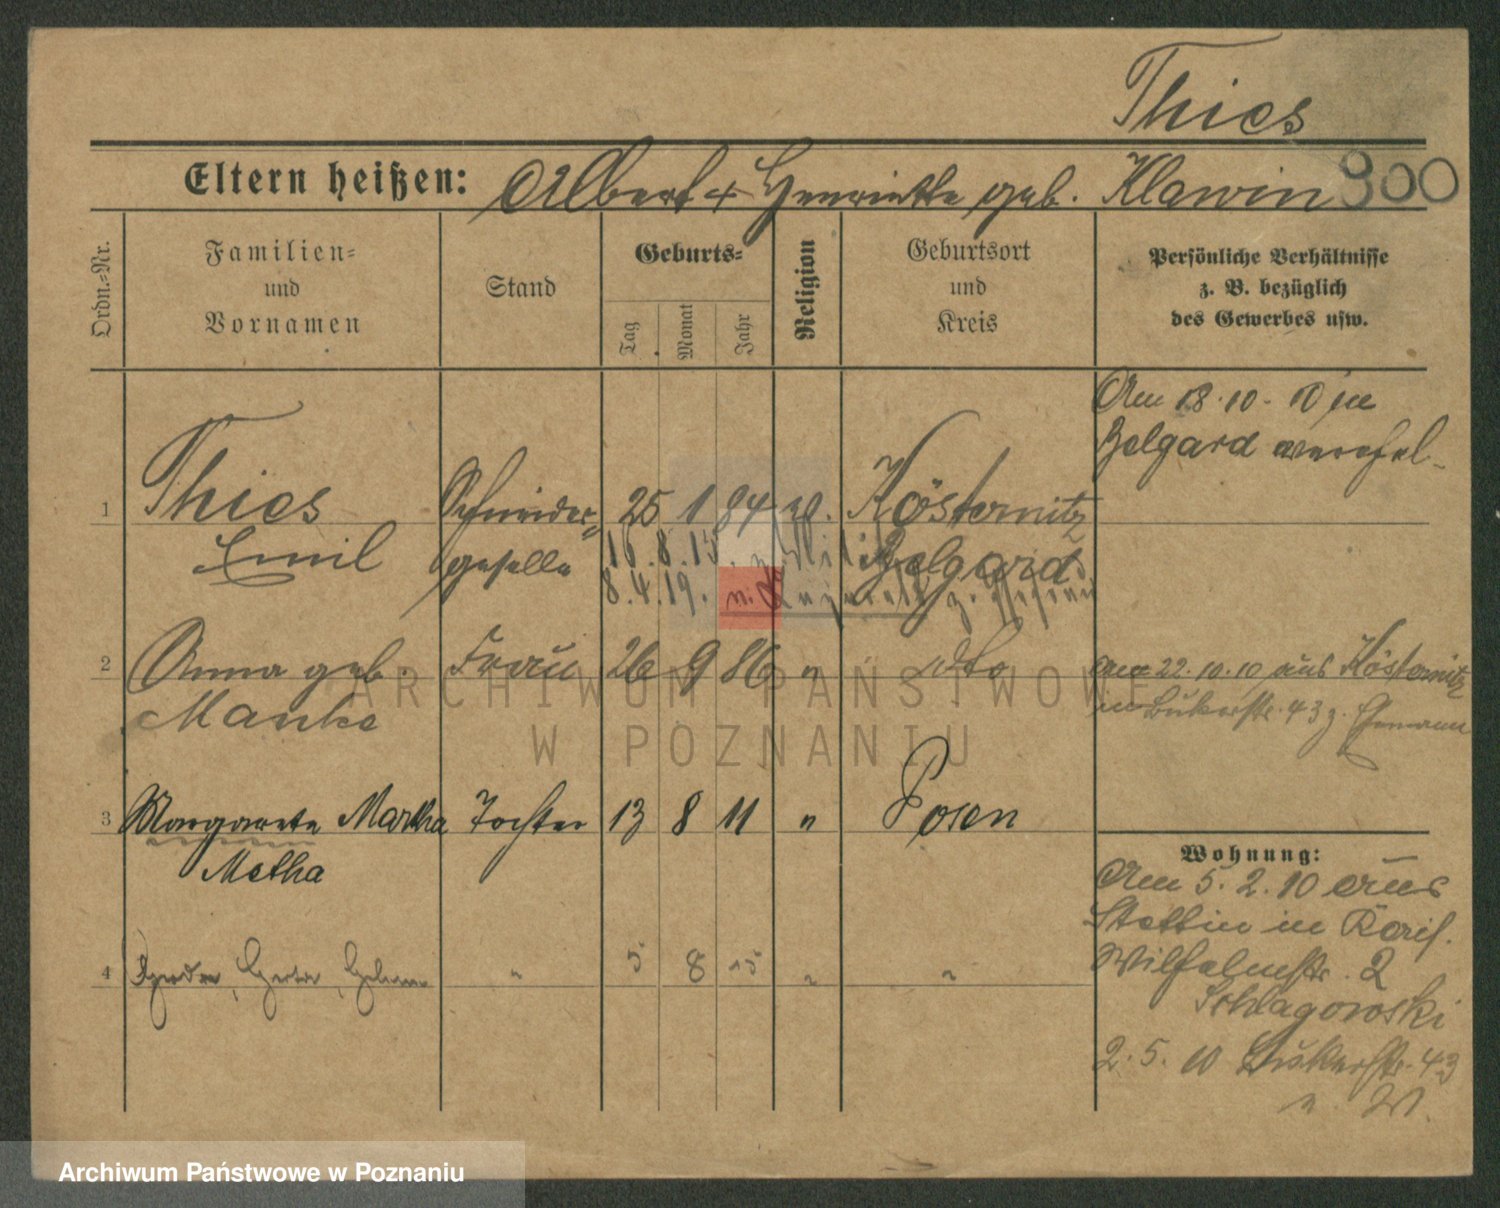 Thies
Eltern heißen: Albert + Henriette geb. Klawin 900
Ordn.-Nr.
Familien- und Vornamen
Stand
Geburts-
Tag
Monat
Jahr
Religion
Geburtsort und Kreis
Persönliche Verhältnisse
z. B. bezüglich
des Gewerbes usw.
Am 18.10.10 in
Belgard verehel-
1 Thies Schneider- 25 1 84 ev. Kösternitz
Emil geselle Belgard
16.8.15. z. Militär
8.4.19. v.
2 Anna geb. Frau 26 9 86 " dto
Manke
Am 22.10.10 aus Kösternitz
in Bukerstr. 43 z. Ehemann
3 Margarete Martha Tochter 13 8 11 " Posen
Metha
Wohnung:
Am 5.2.10 aus
Stettin in Kais.
Wilhelmstr. 2
Schlagowski
2.5.10 Bukerstr. 43
4 Herta, " 5 8 15 " "
ARCHIWUM PAŃSTWOWE
W POZNANIU
Archiwum Państwowe w Poznaniu